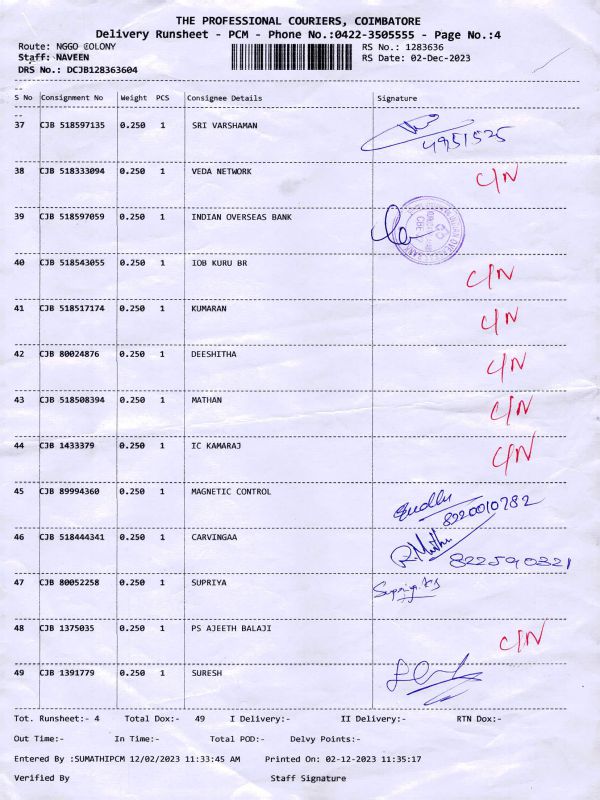 THE PROFESSIONAL COURIERS, COIMBATORE
Delivery Runsheet - PCM - Phone No.:0422-3505555 - Page No.:4
Route: NGGO COLONY RS No.: 1283636
Staff: NAVEEN RS Date: 02-Dec-2023
DRS No.: DCJB128363604
S No Consignment No Weight PCS Consignee Details Signature
37 CJB 518597135 0.250 1 SRI VARSHAMAN
4951525
38 CJB 518333094 0.250 1 VEDA NETWORK C/N
39 CJB 518597059 0.250 1 INDIAN OVERSEAS BANK
40 CJB 518543055 0.250 1 IOB KURU BR C/N
41 CJB 518517174 0.250 1 KUMARAN C/N
42 CJB 80024876 0.250 1 DEESHITHA C/N
43 CJB 518508394 0.250 1 MATHAN C/N
44 CJB 1433379 0.250 1 IC KAMARAJ C/N
45 CJB 89994360 0.250 1 MAGNETIC CONTROL
8220010782
46 CJB 518444341 0.250 1 CARVINGAA
R.Muthu
47 CJB 80052258 0.250 1 SUPRIYA Supriya
48 CJB 1375035 0.250 1 PS AJEETH BALAJI C/N
49 CJB 1391779 0.250 1 SURESH
Tot. Runsheet:- 4 Total Dox:- 49 I Delivery:- II Delivery:- RTN Dox:-
Out Time:- In Time:- Total POD:- Delvy Points:-
Entered By :SUMATHIPCM 12/02/2023 11:33:45 AM Printed On: 02-12-2023 11:35:17
Verified By Staff Signature